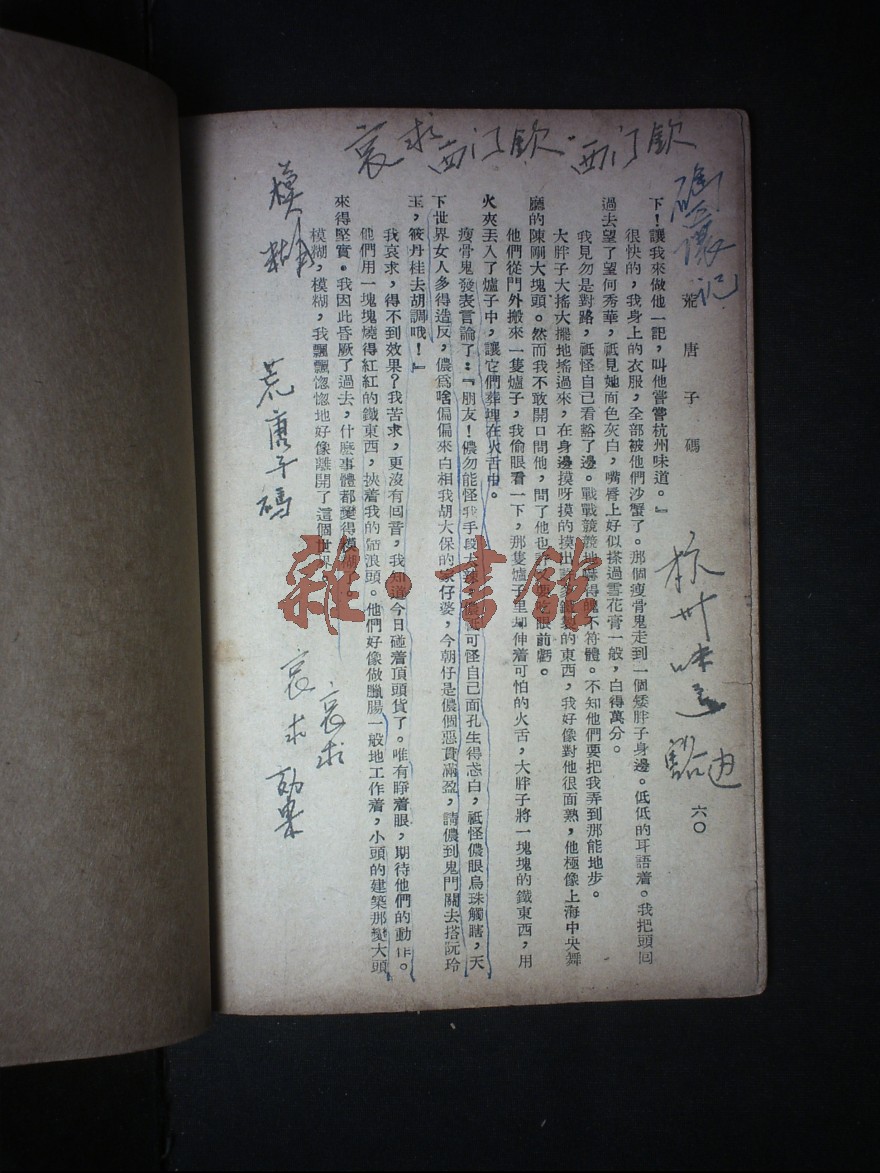 哀求 西门欽 西门欽
記
荒唐子碼
六〇
杭州味道
豁边
下！讓我來做他一記，叫他嘗嘗杭州味道。』
很快的，我身上的衣服，全部被他們沙蟹了。那個瘦骨鬼走到一個矮胖子身邊。低低的耳語着。我把頭回
過去望了望何秀華，祗見她面色灰白，嘴唇上好似搽過雪花膏一般，白得萬分。
我見勿是對路，祗怪自己看豁了邊。戰戰兢兢地嚇得魄不符體。不知他們要把我弄到那能地步。
大胖子大搖大擺地搖過來，在身邊摸呀摸的摸出
的東西，我好像對他很面熟，他極像上海中央舞
廳的陳剛大塊頭。然而我不敢開口問他，問了他也
眼前虧。
他們從門外搬來一隻爐子，我偷眼看一下，那隻爐子里却伸着可怕的火舌，大胖子將一塊塊的鐵東西，用
火夾丟入了爐子中，讓它們葬埋在火舌中。
瘦骨鬼發表言論了：『朋友！儂勿能怪我手段太辣，
可怪自己面孔生得惑白，祗怪儂眼烏珠觸瞎，天
下世界女人多得造反，儂爲啥偏偏來白相我胡大保的家仔婆，今朝仔是儂個惡貫滿盈，請儂到鬼門關去搭阮玲
玉，筱丹桂去胡調哦！』
我哀求，得不到效果？我苦求，更沒有回音，我知道今日碰着頂頭貨了。唯有睜着眼，期待他們的動作。
他們用一塊塊燒得紅紅的鐵東西，挾着我的
浪頭。他們好像做臘腸一般地工作着，小頭的建築那變大頭
來得堅實。我因此昏厥了過去，什麽事體都變得模糊。
模糊，模糊，我飄飄惚惚地好像離開了這個世界
模糊
荒唐子碼
哀求
哀求 効果
雜·書館